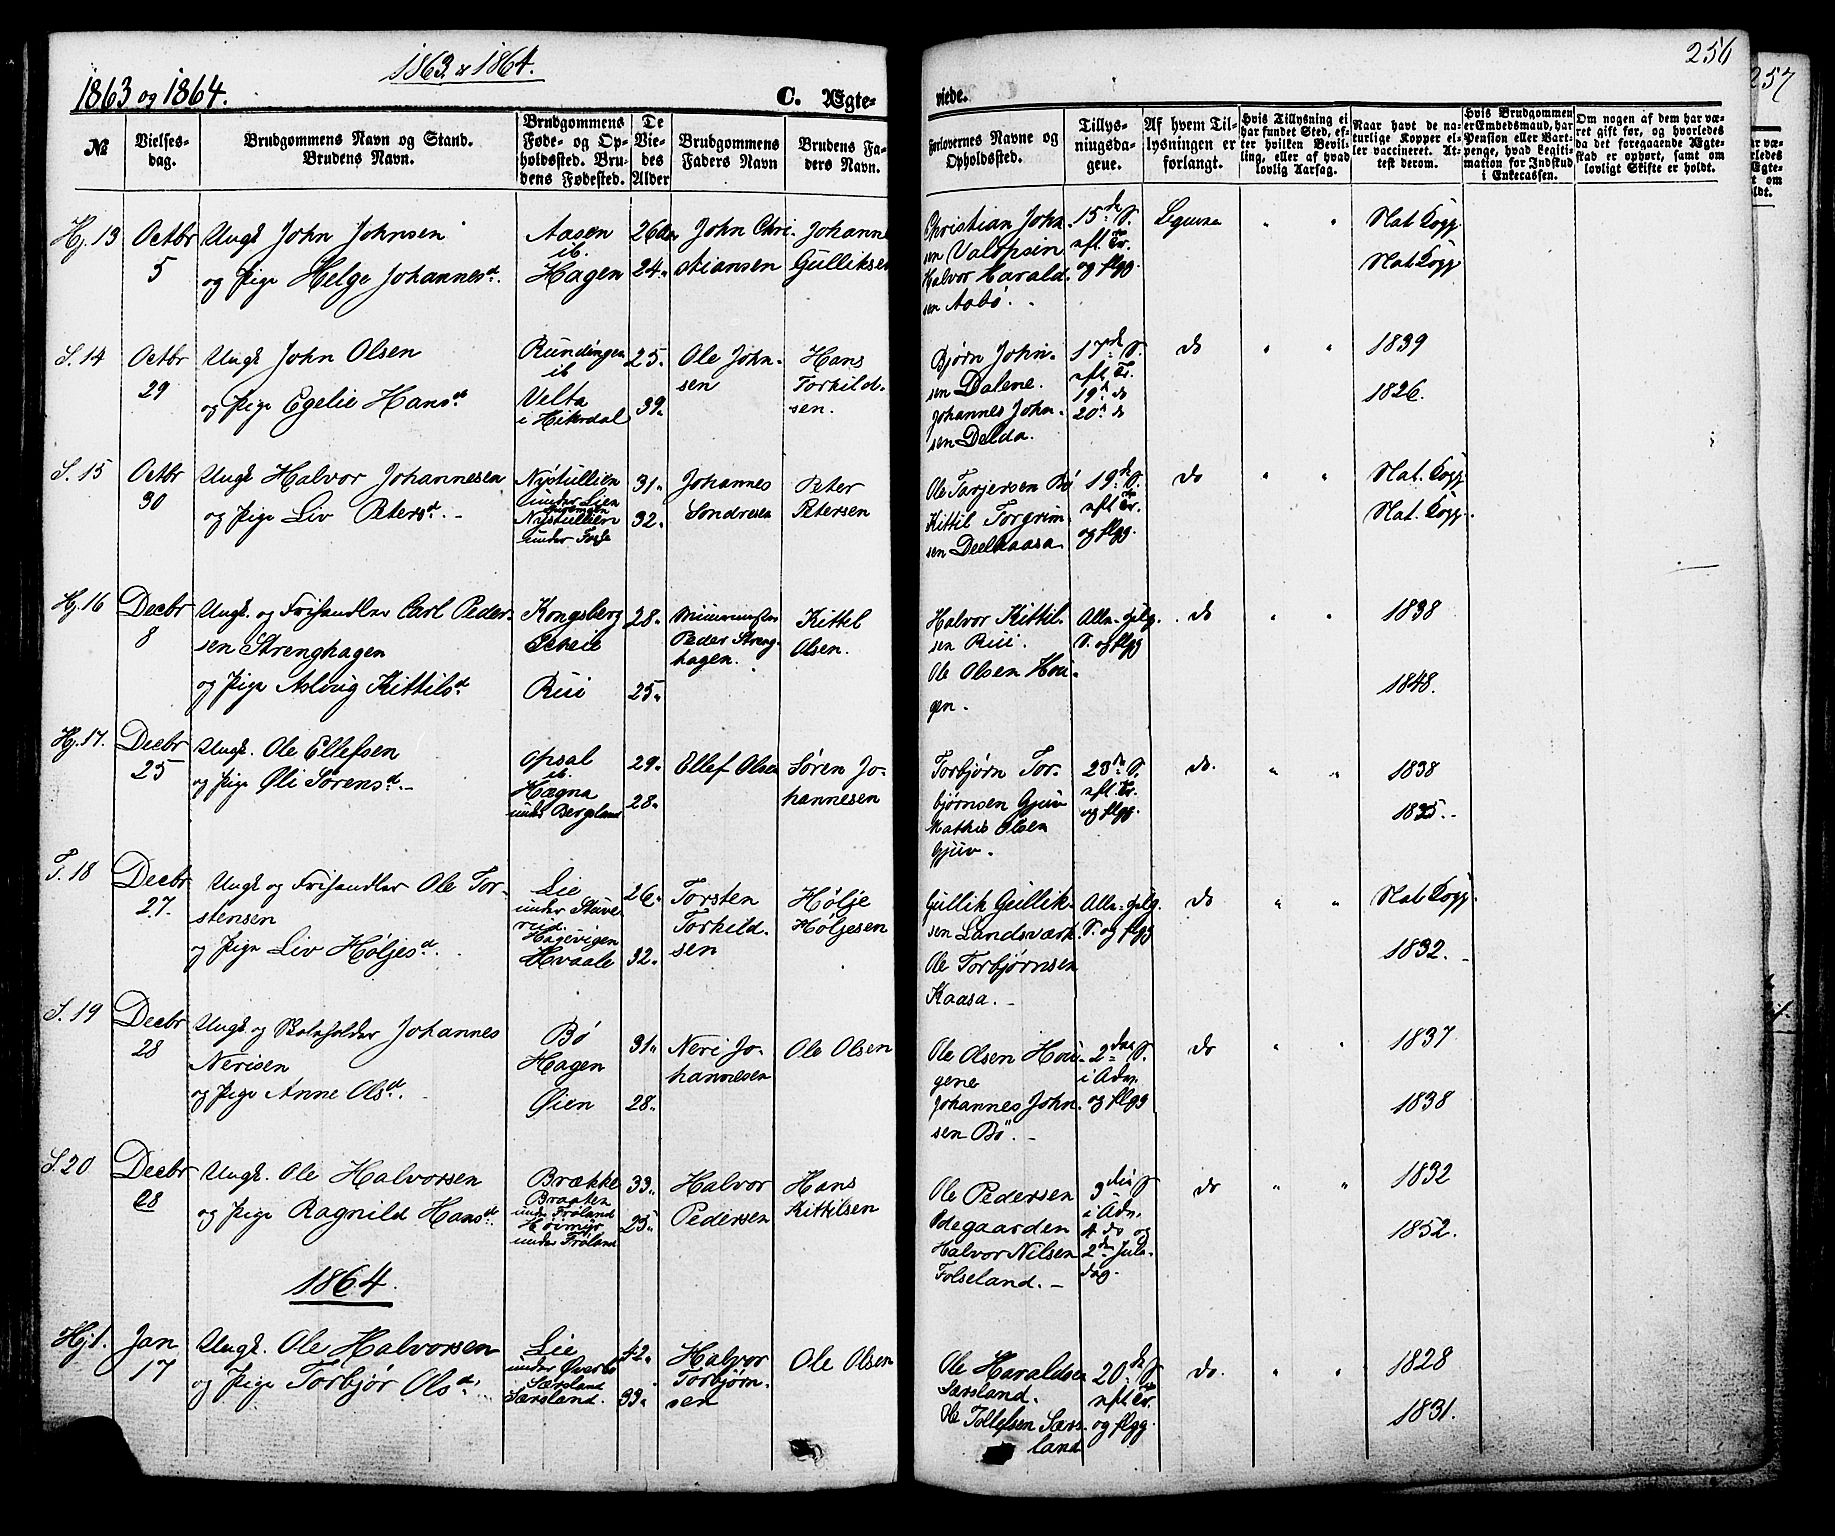 1863 & 1864.
256
257
1863 og 1864.
C. Ægte-
viede.
№
Vielses-
dag.
Brudgommens Navn og Stand.
Brudens Navn.
Brudgommens
Føde- og Op-
holdssted. Bru-
dens Fødested.
De
Vie-
des
Alder
Brudgommens
Faders Navn
Brudens Fa-
ders Navn.
Forlovernes Navne og
Opholdssted.
Tillys-
ningsda-
gene.
Af hvem Til-
lysningen er
forlangt.
Hvis Tillysning ei
har fundet Sted, ef-
ter hvilken Bevil-
ling, eller af hvad
lovlig Aarsag.
Naar havt de na-
turlige Kopper el-
ler vaccineret. At-
test derom.
Hvis Brudgommen
er Embedsmand, har
Pension eller Vart-
penge, hvad Legiti-
mation for Indskud
i Enkecassen.
Om nogen af dem har væ-
ret gift før, og hvorledes
da det foregaaende Ægte-
skab er ophørt, samt om
lovligt Skifte er holdt.
Hj. 13
Octbr
5
Ungk John Johnsen
og Pige Helge Johannesd.
Aasen
ib.
Hagen
26
24
John Chri-
stiansen
Johannes
Gulliksen
Christian John-
sen
Halvor Harald-
sen Aabö.
15de S.
eft. Tr.
og flgg.
Begvæ
Nat. Kopp
Nat Kopp
S. 14
Octbr
29
Ungk John Olsen
og Pige Egelie Hansd
Rundingen
ib
Velta
i Hiterdal
25.
39.
Ole John-
sen
Hans
Torkild-
sen.
Bjørn John-
sen Dalene.
Johannes John-
sen Delda.
17de S.
eft. Tr.
19d do
20d do
do
1839
1826.
S. 15
Octbr
30
Ungk Halvor Johannesen
og Pige Liv Petersd.
Nystullien
under Lien
Nystullien
under
31.
32.
Johannes
Sondresen
Peter
Petersen
Ole Tarjersen Bö
Kittil Torgrim-
sen Deelkaasa
19de S.
eft. Tr.
og flgg.
do
Nat. Kopp
Nat. Kopp.
Hj. 16
Decbr
8
Ungk. og Frihandler Carl Peder-
sen Strenghagen
og Pige Aslaug Kittilsd
Kongsberg
Rui
28.
25.
Peder Streng-
hagen.
Kittil
Olsen.
Halvor Kittil-
sen Rui.
Ole Olsen Hou-
gen.
Alle-helg.
S. og flgg
do
1838
1848.
Hj. 17.
Decbr
25
Ungk. Ole Ellefsen
og Pige Øli Sørensd.
Opsal
ib.
Hægna
under Bergsland
29.
28.
Ellef Olsen
Søren Jo-
hannesen
Torbjørn Tor-
bjørnsen Gjuv
Mathis Olsen
Gjuv.
23de S.
eft. Tr.
og flgg.
do.
1838
1835.
T. 18
Decbr
27.
Ungk og Frihandler Ole Tor-
stensen
og Pige Liv Høljesd.
Lie
under Stuve-
rud.
Hagevigen
Hvaale
26.
32.
Torsten
Torkild-
sen
Hølje
Høljesen
Gullik Gullik-
sen Landsværk
Ole Torbjørnsen
Kaasa.
Alle-helg.
S. og flgg
do
Nat Kopp
1832.
S. 19
Decbr
28
Ungk og Johannes
Nerisen
og Pige Anne Olsd.
Bö
Hagen
Øien
31.
28.
Neri Jo-
hannesen
Ole Olsen
Ole Olsen Hou-
gene
Johannes John-
sen Bö.
2den S.
i Adv.
og flgg
do
1837
1838
S. 20
Decbr
28
Ungk. Ole Halvorsen
og Pige Ragnild Hansd.
Brække
Braaten
under Frøland
Høimyr
under Frøland
33.
25.
Halvor
Pedersen
Hans
Kittilsen
Ole Pedersen
Ødegaarden
Halvor Nilsen
Folseland.
3die S.
i Adv.
4 do og
2den Jule-
dag.
do
1832
1852.
1864.
Hj. 1.
Jan
17
Ungk. Ole Halvorsen
og Pige Torbjør Olsd.
Lie
under Øverbö
Særsland
Særsland.
42.
33.
Halvor
Torbjørn-
sen
Ole Olsen
Ole Haraldsen
Særsland.
Ole Tollefsen Særs-
land
20de S.
eft. Tr.
og flgg.
do.
1828
1831.